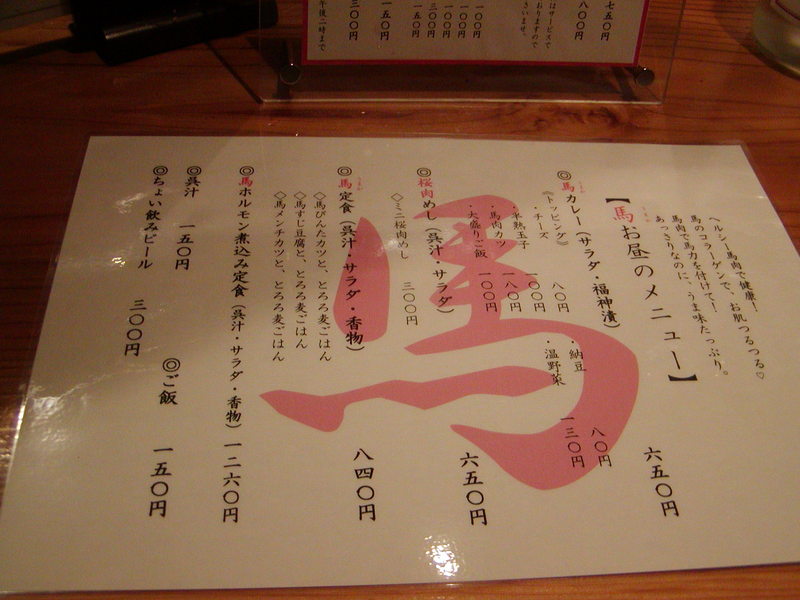 ヘルシー馬肉で健康!
馬のコラーゲンで、お肌つるつる♡
馬肉で馬力を付けてー!
あっさりなのに、うま味たっぷり。
【馬お昼のメニュー】
◎馬カレー(サラダ・福神漬) 六五〇円
《トッピング》
・チーズ 八〇円
・半熟玉子 一〇〇円
・馬肉カツ 一八〇円
・大盛りご飯 一〇〇円
・納豆 八〇円
・温野菜 一三〇円
◎桜肉めし(呉汁・サラダ) 六五〇円
◇ミニ桜肉めし 三〇〇円
◎馬定食(呉汁・サラダ・香物) 八四〇円
◇馬びんたカツと、とろろ麦ごはん
◇馬すじ豆腐と、とろろ麦ごはん
◇馬メンチカツと、とろろ麦ごはん
◎馬ホルモン煮込み定食(呉汁・サラダ・香物) 一二六〇円
◎呉汁 一五〇円
◎ご飯 一五〇円
◎ちょい飲みビール 三〇〇円
馬
七五〇円
八〇〇円
はサービスで
おりますので
さいませ。
一〇〇円
一〇〇円
一〇〇円
三〇〇円
一五〇円
一五〇円
三〇〇円
午後二時まで